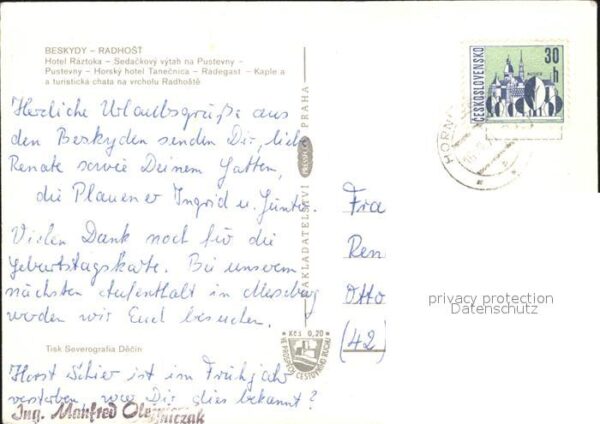 BESKYDY – RADHOŠŤ
Hotel Ráztoka – Sedačkový výtah na Pustevny –
Pustevny – Horský hotel Tanečnica – Radegast – Kaple a
a turistická chata na vrcholu Radhoště
Herzliche Urlaubsgrüße aus
den Beskyden senden Dir, liebe
Renate sowie Deinem Gatten,
die Plauener Ingrid u. Günter.
Vielen Dank noch für die
Geburtstagskarte. Bei unserem
nächsten Aufenthalt in Meseberg
werden wir Euch besuchen.
Tisk Severografia Děčín
Horst Schier ist im Frühjahr
verstorben, war Dir dies bekannt?
Ing. Manfred Olejniczak
NAKLADATELSTVÍ PRESSFOTO PRAHA
Kčs 0,20
ČESKOSLOVENSKO
30 h
HORN
Fra
Ren
Otto
(42)
privacy protection
Datenschutz